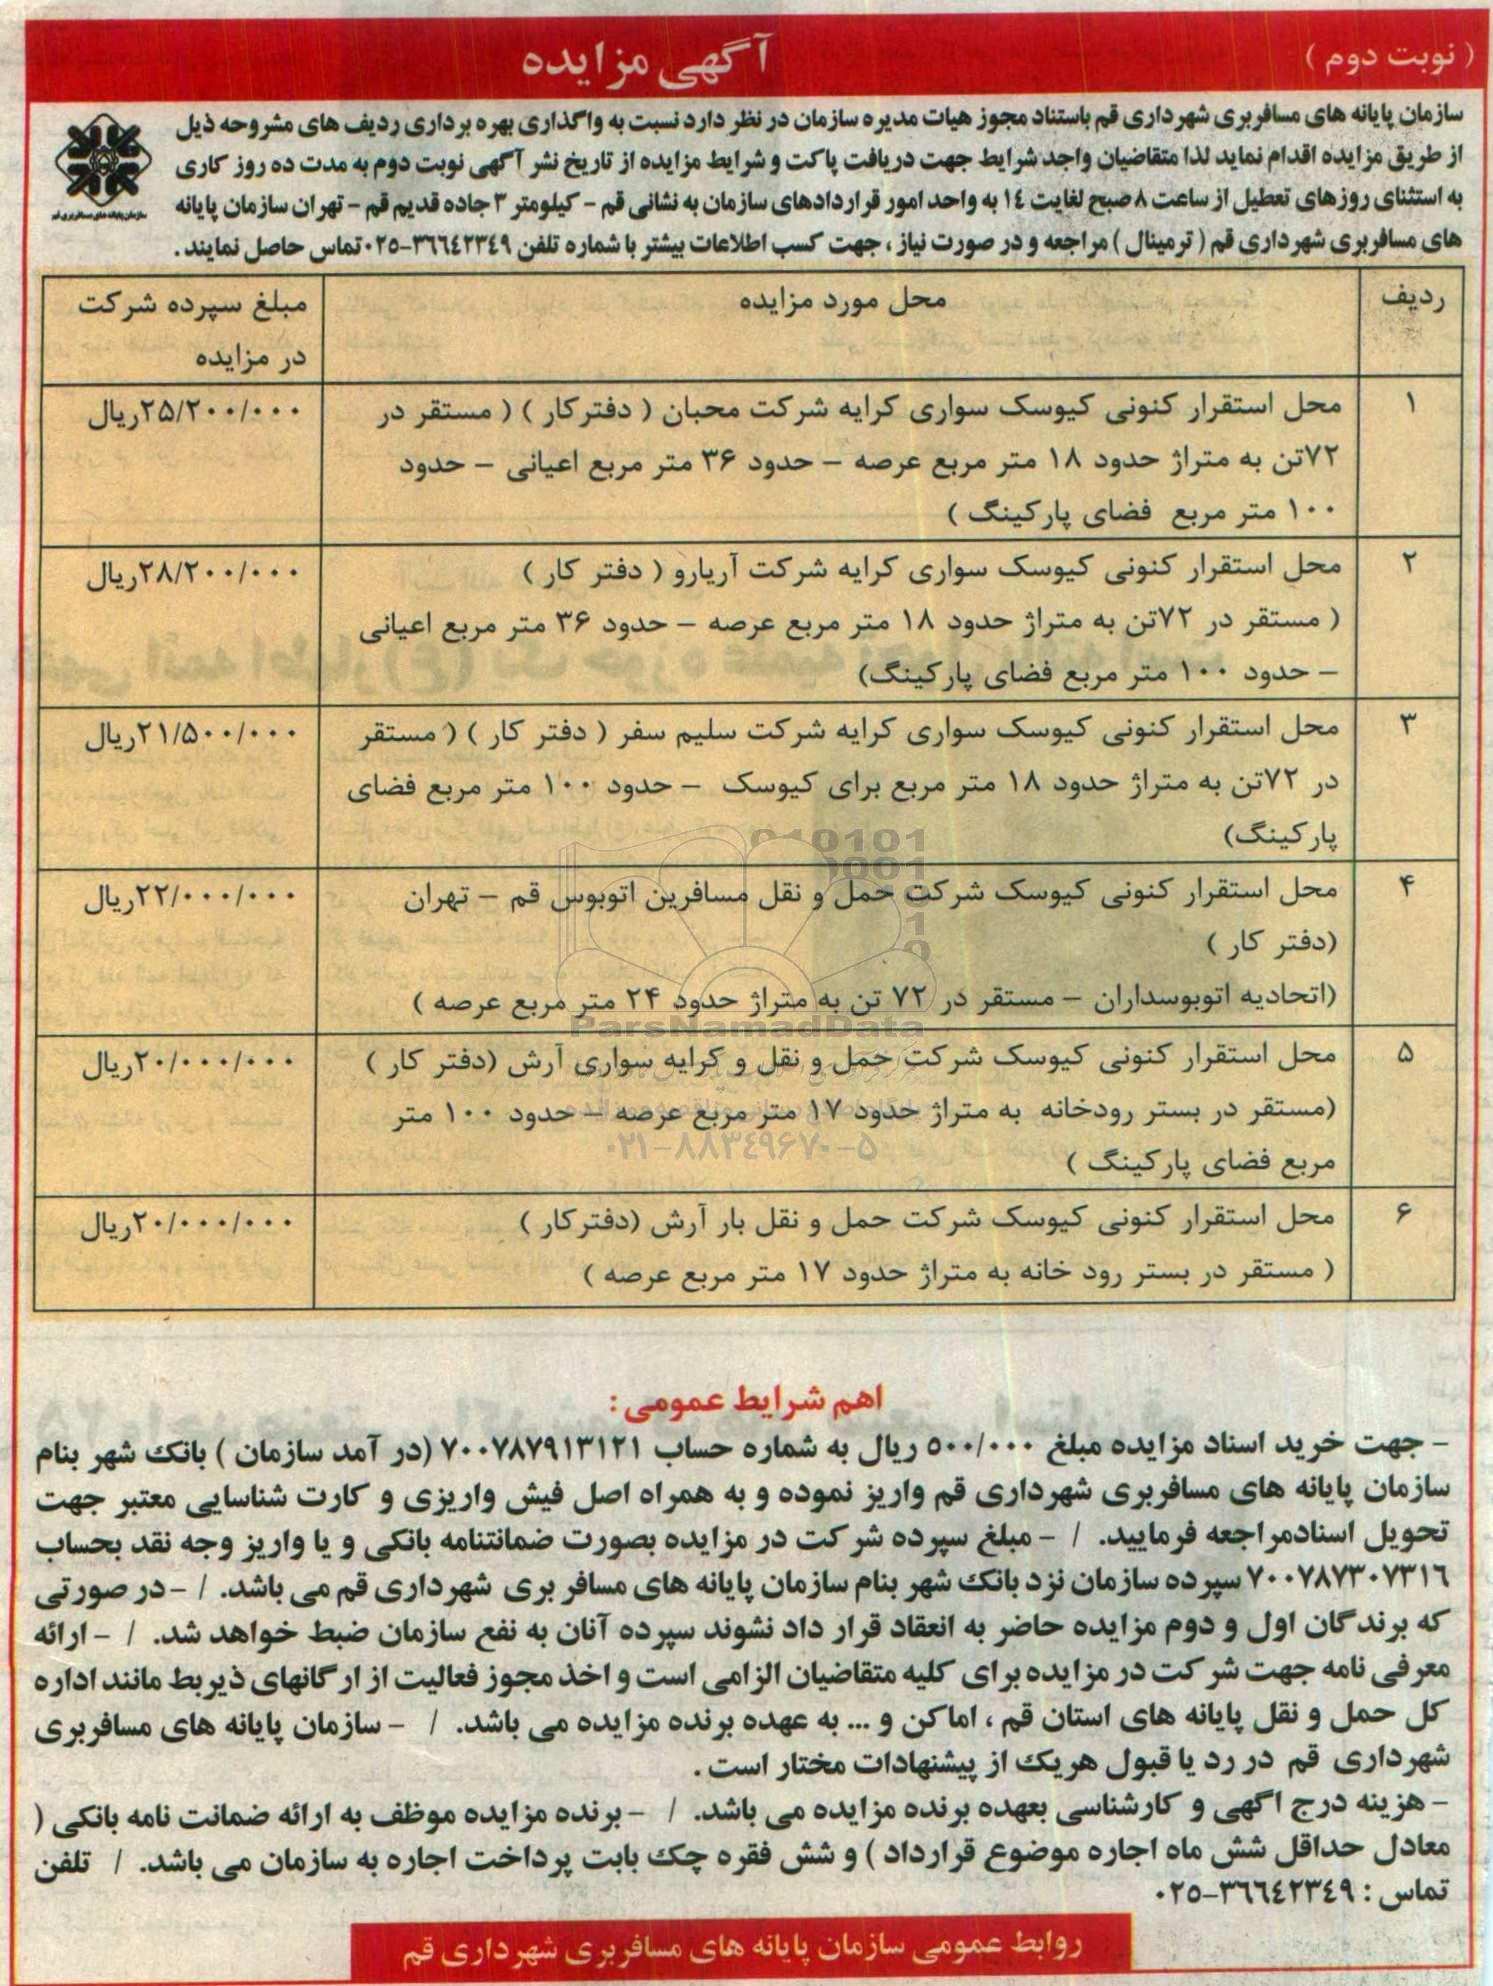 ( نوبت دوم )
آگهی مزایده
سازمان پایانه های مسافربری شهرداری قم باستناد مجوز هیات مدیره سازمان در نظر دارد نسبت به واگذاری بهره برداری ردیف های مشروحه ذیل
از طریق مزایده اقدام نماید لذا متقاضیان واجد شرایط جهت دریافت پاکت و شرایط مزایده از تاریخ نشر آگهی نوبت دوم به مدت ده روز کاری
به استثنای روزهای تعطیل از ساعت ۸ صبح لغایت ۱۴ به واحد امور قراردادهای سازمان به نشانی قم - کیلومتر ۳ جاده قدیم قم - تهران سازمان پایانه
های مسافربری شهرداری قم ( ترمینال ) مراجعه و در صورت نیاز ، جهت کسب اطلاعات بیشتر با شماره تلفن ۳۶۶۴۲۳۴۹-۰۲۵ تماس حاصل نمایند .
سازمان پایانه های مسافربری قم
ردیف
محل مورد مزایده
مبلغ سپرده شرکت
در مزایده
۱
محل استقرار کنونی کیوسک سواری کرایه شرکت محبان ( دفترکار ) ( مستقر در
۷۲تن به متراژ حدود ۱۸ متر مربع عرصه – حدود ۳۶ متر مربع اعیانی – حدود
۱۰۰ متر مربع فضای پارکینگ )
۲۵/۲۰۰/۰۰۰ریال
۲
محل استقرار کنونی کیوسک سواری کرایه شرکت آریارو ( دفتر کار )
( مستقر در ۷۲تن به متراژ حدود ۱۸ متر مربع عرصه – حدود ۳۶ متر مربع اعیانی
– حدود ۱۰۰ متر مربع فضای پارکینگ)
۲۸/۲۰۰/۰۰۰ریال
۳
محل استقرار کنونی کیوسک سواری کرایه شرکت سلیم سفر ( دفتر کار ) ( مستقر
در ۷۲تن به متراژ حدود ۱۸ متر مربع برای کیوسک – حدود ۱۰۰ متر مربع فضای
پارکینگ)
۲۱/۵۰۰/۰۰۰ریال
۴
محل استقرار کنونی کیوسک شرکت حمل و نقل مسافرین اتوبوس قم – تهران
(دفتر کار )
(اتحادیه اتوبوسداران – مستقر در ۷۲ تن به متراژ حدود ۲۴ متر مربع عرصه )
۲۲/۰۰۰/۰۰۰ریال
۵
محل استقرار کنونی کیوسک شرکت حمل و نقل و کرایه سواری آرش (دفتر کار )
(مستقر در بستر رودخانه به متراژ حدود ۱۷ متر مربع عرصه – حدود ۱۰۰ متر
مربع فضای پارکینگ )
۲۰/۰۰۰/۰۰۰ریال
۶
محل استقرار کنونی کیوسک شرکت حمل و نقل بار آرش (دفترکار )
( مستقر در بستر رود خانه به متراژ حدود ۱۷ متر مربع عرصه )
۲۰/۰۰۰/۰۰۰ریال
ParsNamadData
۰۲۱-۸۸۳۴۹۶۷۰-۵
اهم شرایط عمومی :
- جهت خرید اسناد مزایده مبلغ ۵۰۰/۰۰۰ ریال به شماره حساب ۷۰۰۷۸۷۹۱۳۱۲۱ (در آمد سازمان ) بانک شهر بنام
سازمان پایانه های مسافربری شهرداری قم واریز نموده و به همراه اصل فیش واریزی و کارت شناسایی معتبر جهت
تحویل اسنادمراجعه فرمایید. / - مبلغ سپرده شرکت در مزایده بصورت ضمانتنامه بانکی و یا واریز وجه نقد بحساب
۷۰۰۷۸۷۳۰۷۳۱۶ سپرده سازمان نزد بانک شهر بنام سازمان پایانه های مسافر بری شهرداری قم می باشد. / - در صورتی
که برندگان اول و دوم مزایده حاضر به انعقاد قرار داد نشوند سپرده آنان به نفع سازمان ضبط خواهد شد. / - ارائه
معرفی نامه جهت شرکت در مزایده برای کلیه متقاضیان الزامی است و اخذ مجوز فعالیت از ارگانهای ذیربط مانند اداره
کل حمل و نقل پایانه های استان قم ، اماکن و ... به عهده برنده مزایده می باشد. / - سازمان پایانه های مسافربری
شهرداری قم در رد یا قبول هریک از پیشنهادات مختار است .
- هزینه درج اگهی و کارشناسی بعهده برنده مزایده می باشد. / - برنده مزایده موظف به ارائه ضمانت نامه بانکی (
معادل حداقل شش ماه اجاره موضوع قرارداد ) و شش فقره چک بابت پرداخت اجاره به سازمان می باشد. / تلفن
تماس : ۳۶۶۴۲۳۴۹-۰۲۵
روابط عمومی سازمان پایانه های مسافربری شهرداری قم